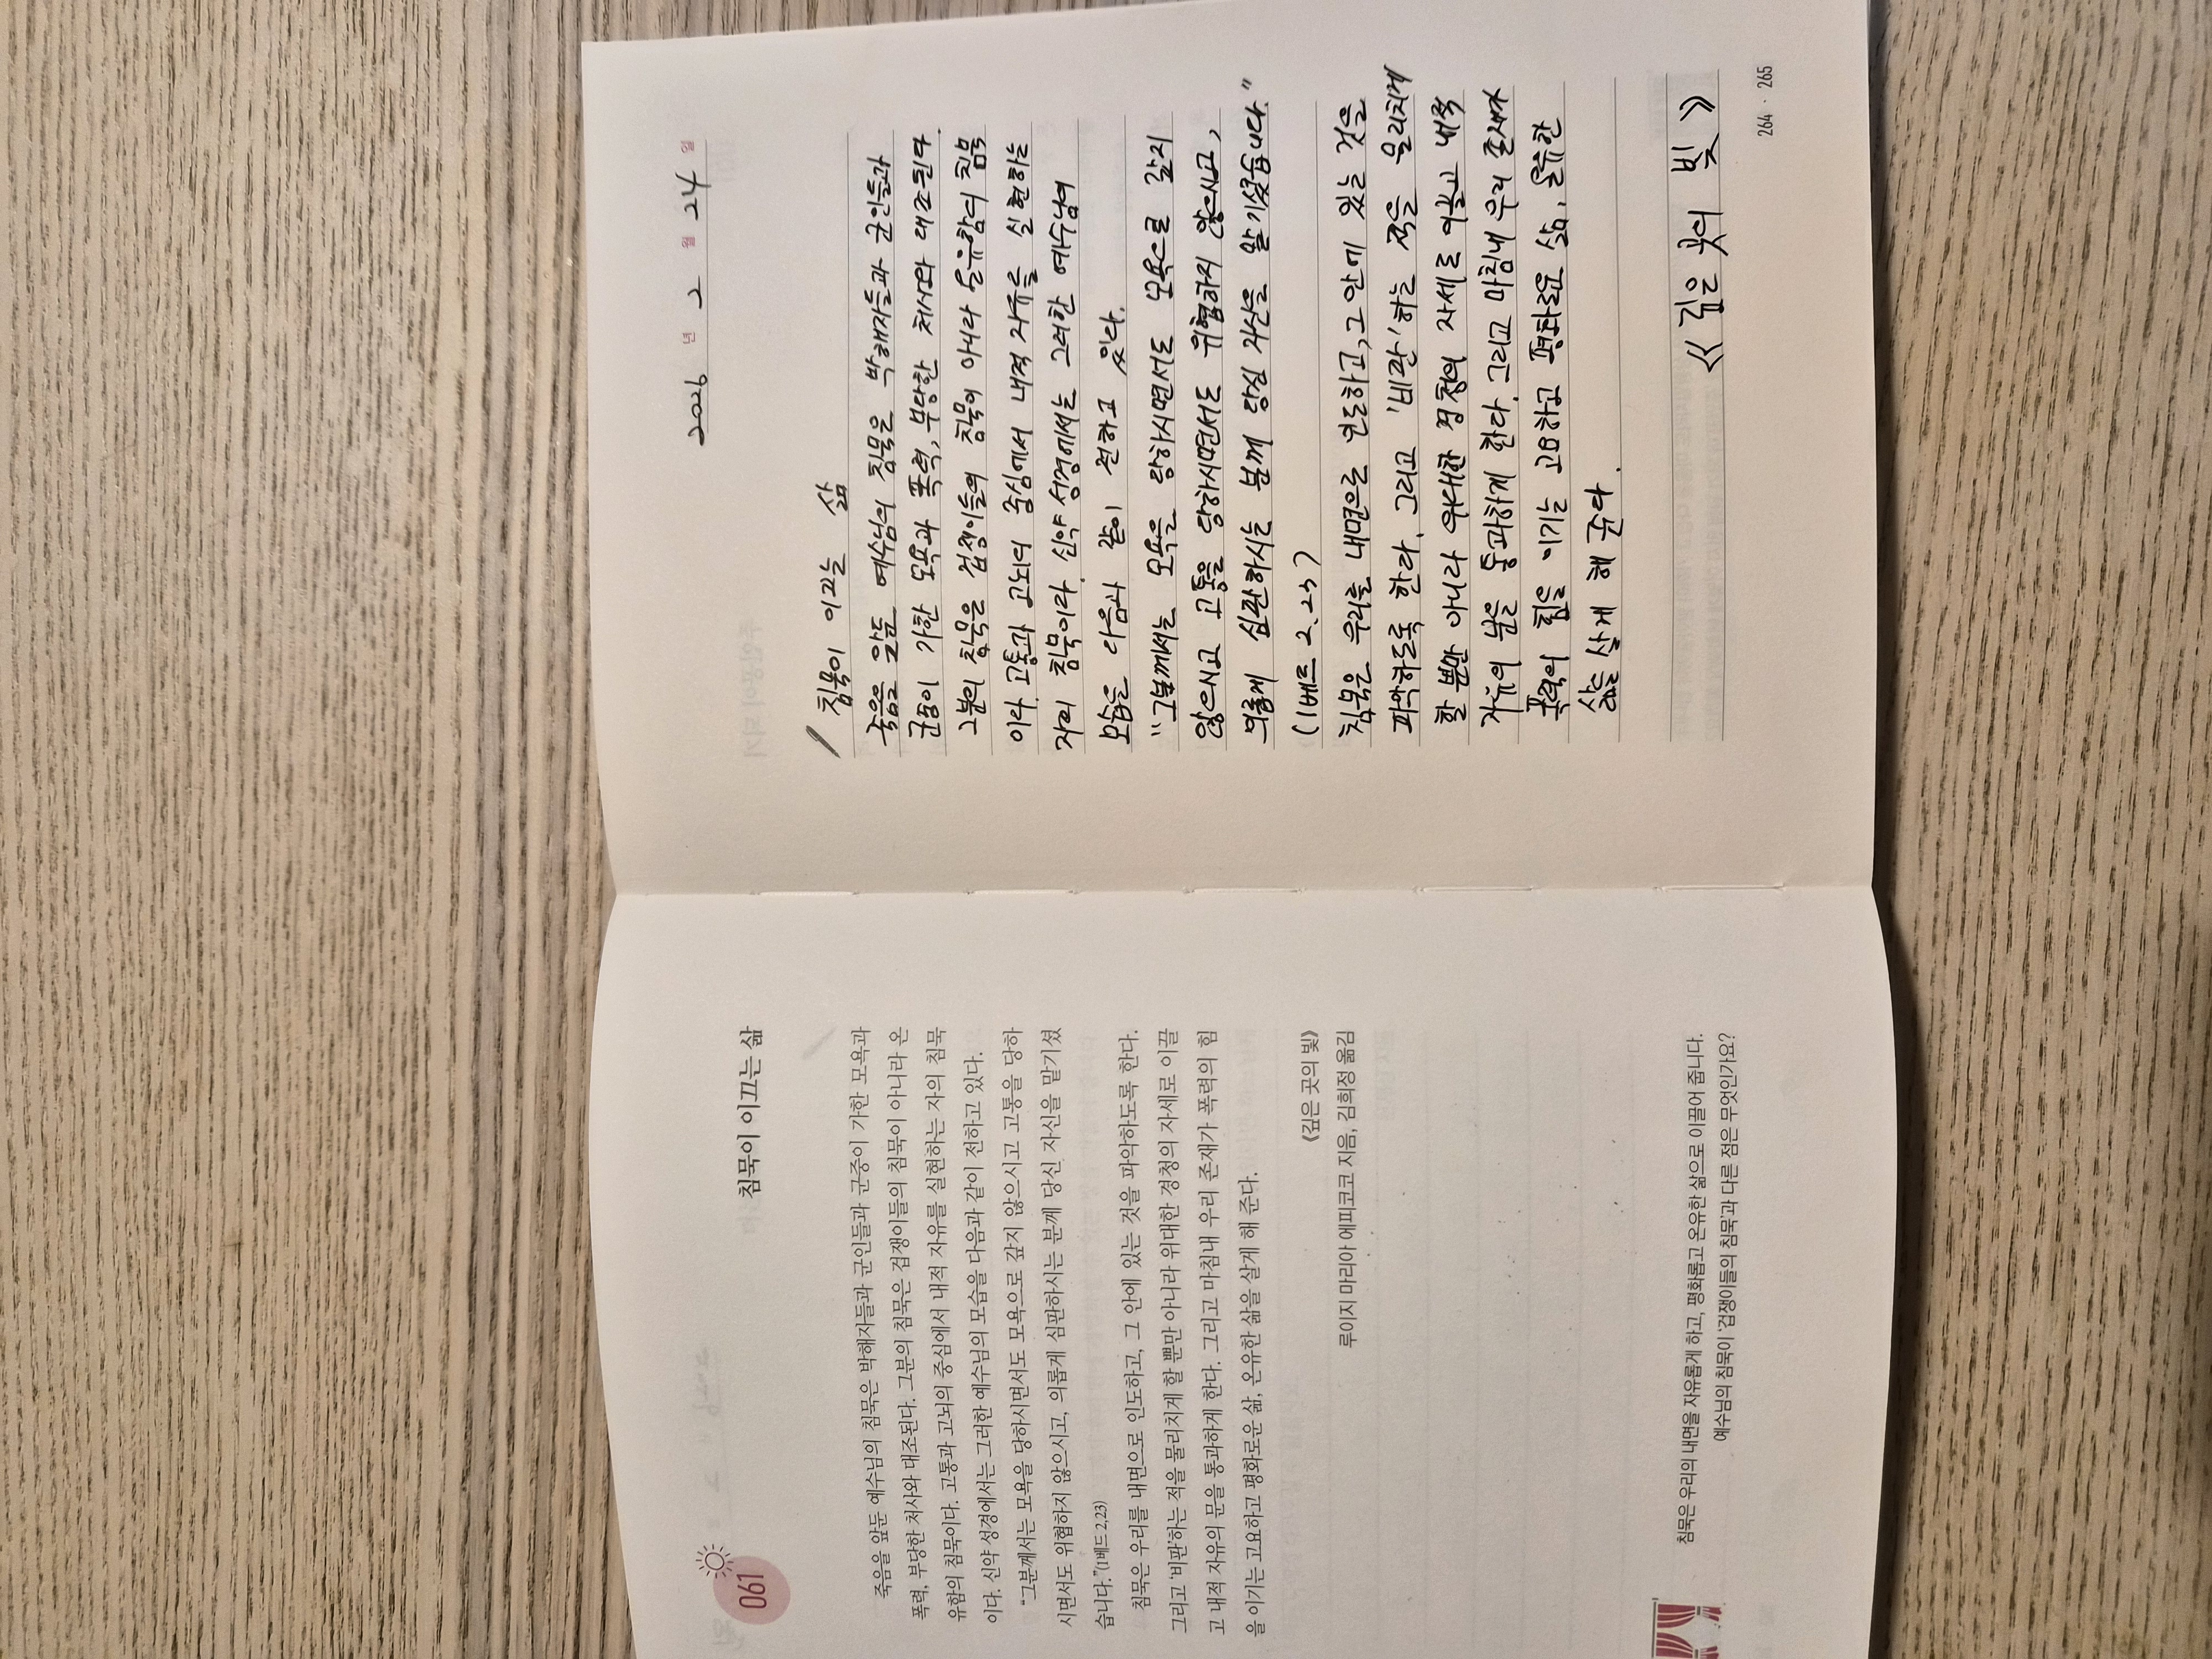 061
침묵이 이끄는 삶
죽음을 앞둔 예수님의 침묵은 박해자들과 군인들과 군중이 가한 모욕과
폭력, 부당한 처사와 대조된다. 그분의 침묵은 겁쟁이들의 침묵이 아니라 온
유함의 침묵이다. 고통과 고뇌의 중심에서 내적 자유를 실현하는 자의 침묵
이다. 신약 성경에서는 그러한 예수님의 모습을 다음과 같이 전하고 있다.
“그분께서는 모욕을 당하시면서도 모욕으로 갚지 않으시고 고통을 당하
시면서도 위협하지 않으시고, 의롭게 심판하시는 분께 당신 자신을 맡기셨
습니다.”(1베드 2,23)
침묵은 우리를 내면으로 인도하고, 그 안에 있는 것을 파악하도록 한다.
그리고 ‘비판’하는 적을 물리치게 할 뿐만 아니라 위대한 경청의 자세로 이끌
고 내적 자유의 문을 통과하게 한다. 그리고 마침내 우리 존재가 폭력의 힘
을 이기는 고요하고 평화로운 삶, 온유한 삶을 살게 해 준다.
《깊은 곳의 빛》
루이지 마리아 에피코코 지음, 김희정 옮김
침묵은 우리의 내면을 자유롭게 하고, 평화롭고 온유한 삶으로 이끌어 줍니다.
예수님의 침묵이 ‘겁쟁이들의 침묵’과 다른 점은 무엇인가요?
2026 년 2 월 24 일
침묵이 이끄는 삶
죽음을 앞둔 예수님의 침묵은 박해자들과 군인들과
군중이 가한 모욕과 폭력, 부당한 처사와 대조된다.
그분의 침묵은 겁쟁이들의 침묵이 아니라 온유함의 침묵
이다. 고통과 고뇌의 중심에서 내적 자유를 실현하는
자의 침묵이다. 신약 성경에서는 그러한 예수님의
모습을 다음과 같이 전하고 있다.
“그분께서는 모욕을 당하시면서도 모욕으로 갚지
않으시고 고통을 당하시면서도 위협하지 않으시고,
의롭게 심판하시는 분께 당신 자신을 맡기셨습니다.”
(1베드 2.23)
침묵은 우리를 내면으로 인도하고, 그 안에 있는 것을
파악하도록 한다. 그리고 '비판'하는 적을 물리치게
할 뿐만 아니라 위대한 경청의 자세로 이끌고 내적
자유의 문을 통과하게 한다. 그리고 마침내 우리 존재가
폭력의 힘을 이기는 고요하고 평화로운 삶, 온유한
삶을 살게 해 준다.
《깊은 곳의 빛》
264 · 265